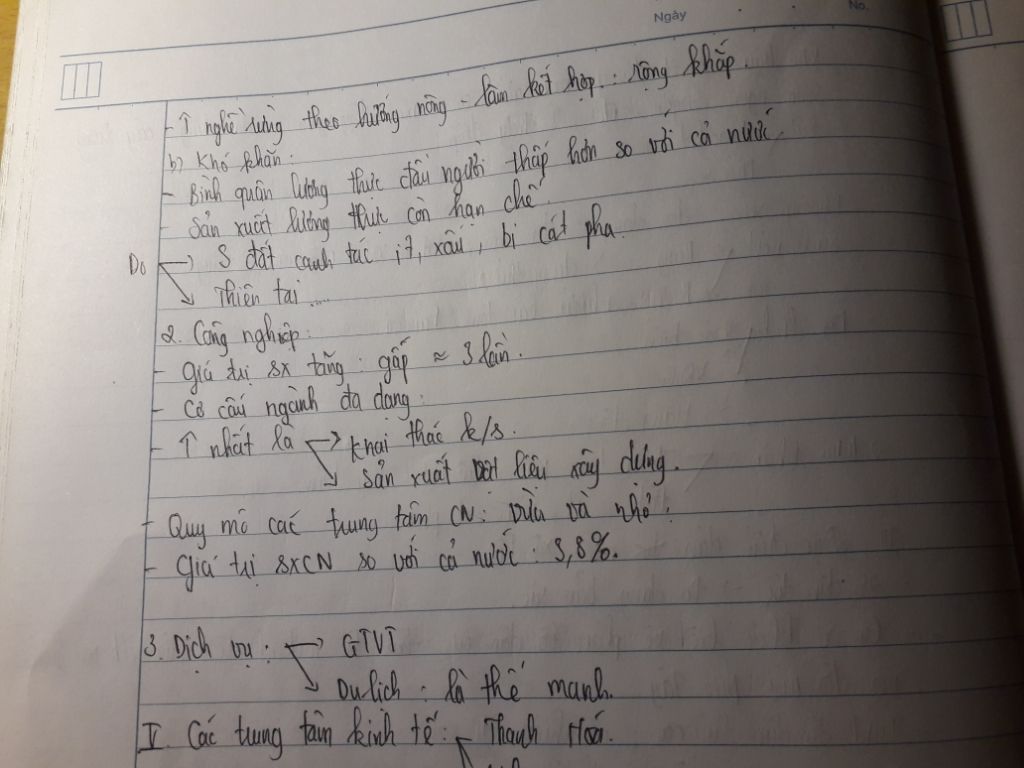 Ngày
No.
- ↑ nghề rừng theo hướng nông - lâm kết hợp : rộng khắp.
b) Khó khăn:
- Bình quân lương thực đầu người thấp hơn so với cả nước
- Sản xuất lương thực còn hạn chế.
Do → S đất canh tác ít, xấu, bị cát pha
↘ Thiên tai....
2. Công nghiệp:
- Giá trị sx tăng : gấp ≈ 3 lần.
- Cơ cấu ngành đa dạng:
- ↑ nhất là → khai thác k/s.
↘ Sản xuất vật liệu xây dựng.
- Quy mô các trung tâm CN: Vừa và nhỏ.
- Giá trị sxCN so với cả nước : 3,8%.
3. Dịch vụ : → GTVT
↘ Du lịch : là thế mạnh.
V. Các trung tâm kinh tế : Thanh Hoá.